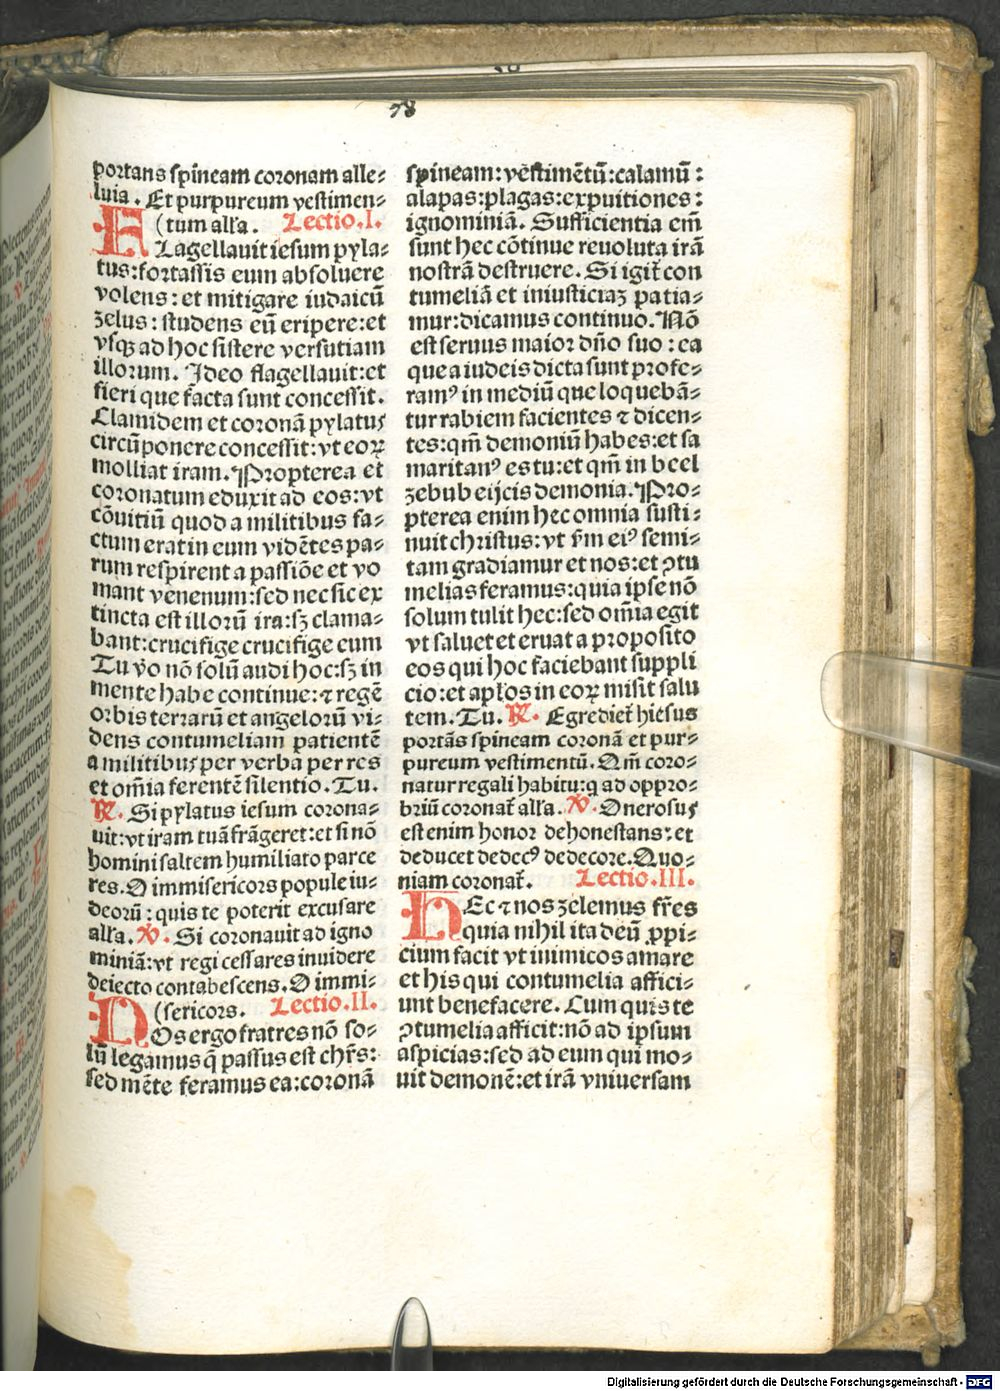 78
portans spineam coronam alle⸗
luia . Et purpureum vestimen⸗
(tum all'a . Lectio.I.
FLagellauit iesum pyla⸗
tus:fortassis eum absoluere
volens: et mitigare iudaicū
zelus: studens eū eripere:et
vsqꝫ ad hoc sistere versutiam
illorum. Ideo flagellauit:et
fieri que facta sunt concessit.
Clamidem et coronā pylatus
circūponere concessit:vt eoꝝ
molliat iram. Propterea et
coronatum eduxit ad eos:vt
cōuitiū quod a militibus fa⸗
ctum erat in eum vidētes pa⸗
rum respirent a passiōe et vo
mant venenum:sed nec sic ex
tincta est illorū ira:sꝫ clama⸗
bant:crucifige crucifige eum
Tu v̄o nō solū audi hoc:sꝫ in
mente habe continue:⁊ regē
orbis terrarū et angelorū vi⸗
dens contumeliam patientē
a militibus per verba per res
et om̄ia ferentē silentio. Tu.
℟. Si pylatus iesum corona⸗
uit:vt iram tuā frāgeret:et si nō
homini saltem humiliato parce
res. O immisericors popule iu⸗
deorū: quis te poterit excusare
all'a. ℣. Si coronauit ad igno
miniā:vt regi cessares inuidere
deiecto contabescens. O immi⸗
(sericors. Lectio.II.
NOs ergo fratres nō so⸗
lū legamus q̄ passus est chr̄s:
sed mēte feramus ea:coronā
spineam:vestimētū:calamū :
alapas:plagas:expuitiones:
ignominiā. Sufficientia em̄
sunt hec cōtinue reuoluta irā
nostrā destruere. Si igit̄ con
tumeliā et iniusticiaꝫ patia⸗
mur:dicamus continuo. Nō
est seruus maior dn̄o suo : ea
que a iudeis dicta sunt profe⸗
ramꝰ in mediū que loquebā⸗
tur rabiem facientes ⁊ dicen⸗
tes:qm̄ demoniū habes:et sa
maritanꝰ es tu:et qm̄ in beel
zebub eijcis demonia. Pro⸗
pterea enim hec omnia susti⸗
nuit christus:vt v̄m eiꝰ semi⸗
tam gradiamur et nos:et ꝯtu
melias feramus:quia ipse nō
solum tulit hec:sed om̄ia egit
vt saluet et eruat a proposito
eos qui hoc faciebant suppli
cio:et apl'os in eoꝝ misit salu
tem. Tu. ℟. Egrediet̄ hiesus
portās spineam coronā et pur⸗
pureum vestimentū. Qm̄ coro⸗
natur regali habitu:q̄ ad oppro⸗
briū coronat̄ all'a. ℣. Onerosus
est enim honor dehonestans: et
deducet dedecꝰ dedecore. Quo⸗
niam coronat̄. Lectio.III.
HEc ⁊ nos zelemus fr̄es
quia nihil ita deū ꝓpi⸗
cium facit vt inimicos amare
et his qui contumelia affici⸗
unt benefacere. Cum quis te
ꝯtumelia afficit:nō ad ipsum
aspicias:sed ad eum qui mo⸗
uit demonē:et irā vniuersam
Digitalisierung gefördert durch die Deutsche Forschungsgemeinschaft - DFG